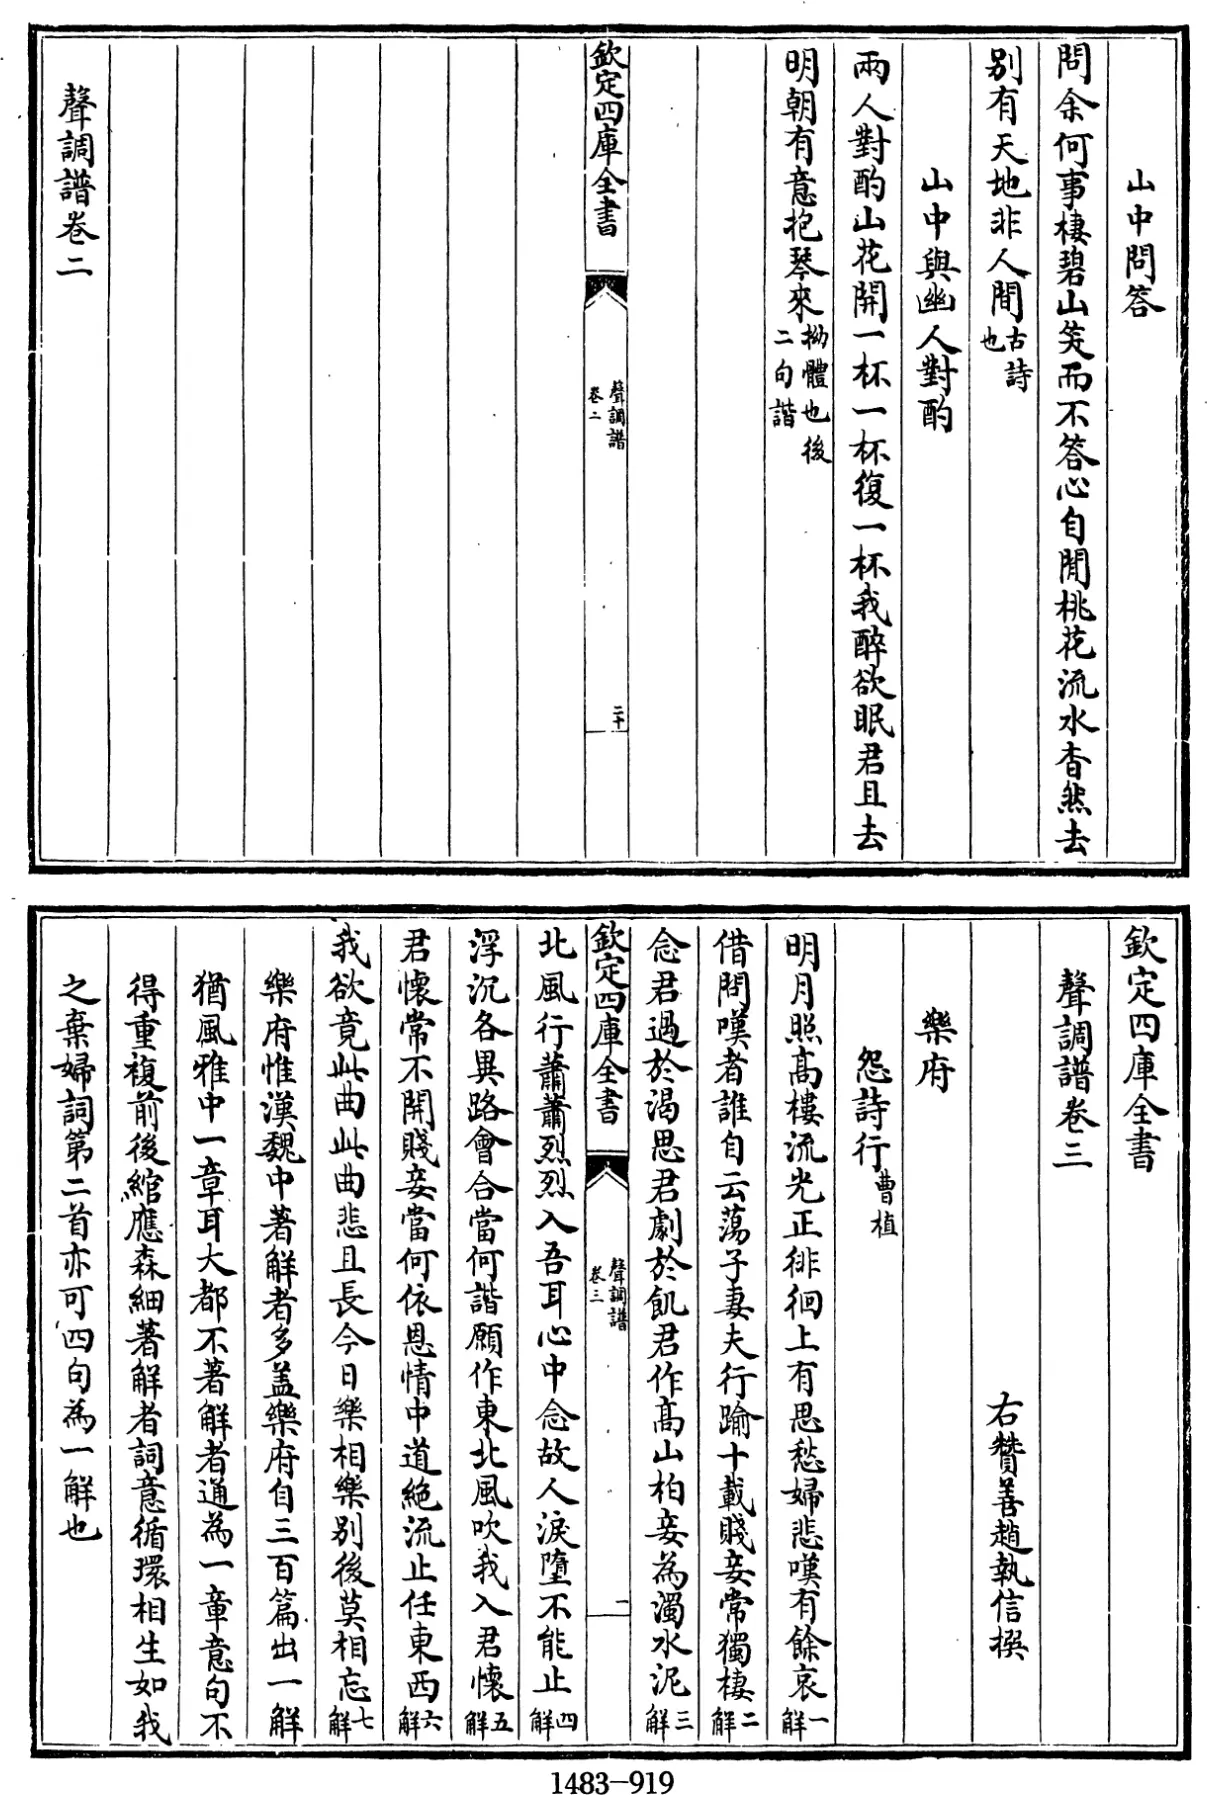 山中問答
問余何事棲碧山笑而不答心自閒桃花流水杳然去
别有天地非人間古詩
也
山中與幽人對酌
兩人對酌山花開一杯一杯復一杯我醉欲眠君且去
明朝有意抱琴來拗體也後
二句諧
欽定四庫全書
聲調譜
卷二
二十
聲調譜卷二
欽定四庫全書
聲調譜卷三
右贊善趙執信撰
樂府
怨詩行曹植
明月照高樓流光正徘徊上有思愁婦悲嘆有餘哀一
解
借問嘆者誰自云蕩子妻夫行踰十載賤妾常獨棲二
解
念君過於渴思君劇於飢君作高山柏妾為濁水泥三
解
欽定四庫全書
聲調譜
卷三
一
北風行蕭蕭烈烈入吾耳心中念故人淚墮不能止四
解
浮沉各異路會合當何諧願作東北風吹我入君懷五
解
君懷常不開賤妾當何依恩情中道絶流止任東西六
解
我欲竟此曲此曲悲且長今日樂相樂别後莫相忘七
解
樂府惟漢魏中著解者多盖樂府自三百篇出一解
猶風雅中一章耳大都不著解者通為一章意句不
得重複前後綰應森細著解者詞意循環相生如我
之棄婦詞第二首亦可四句為一解也
1483-919